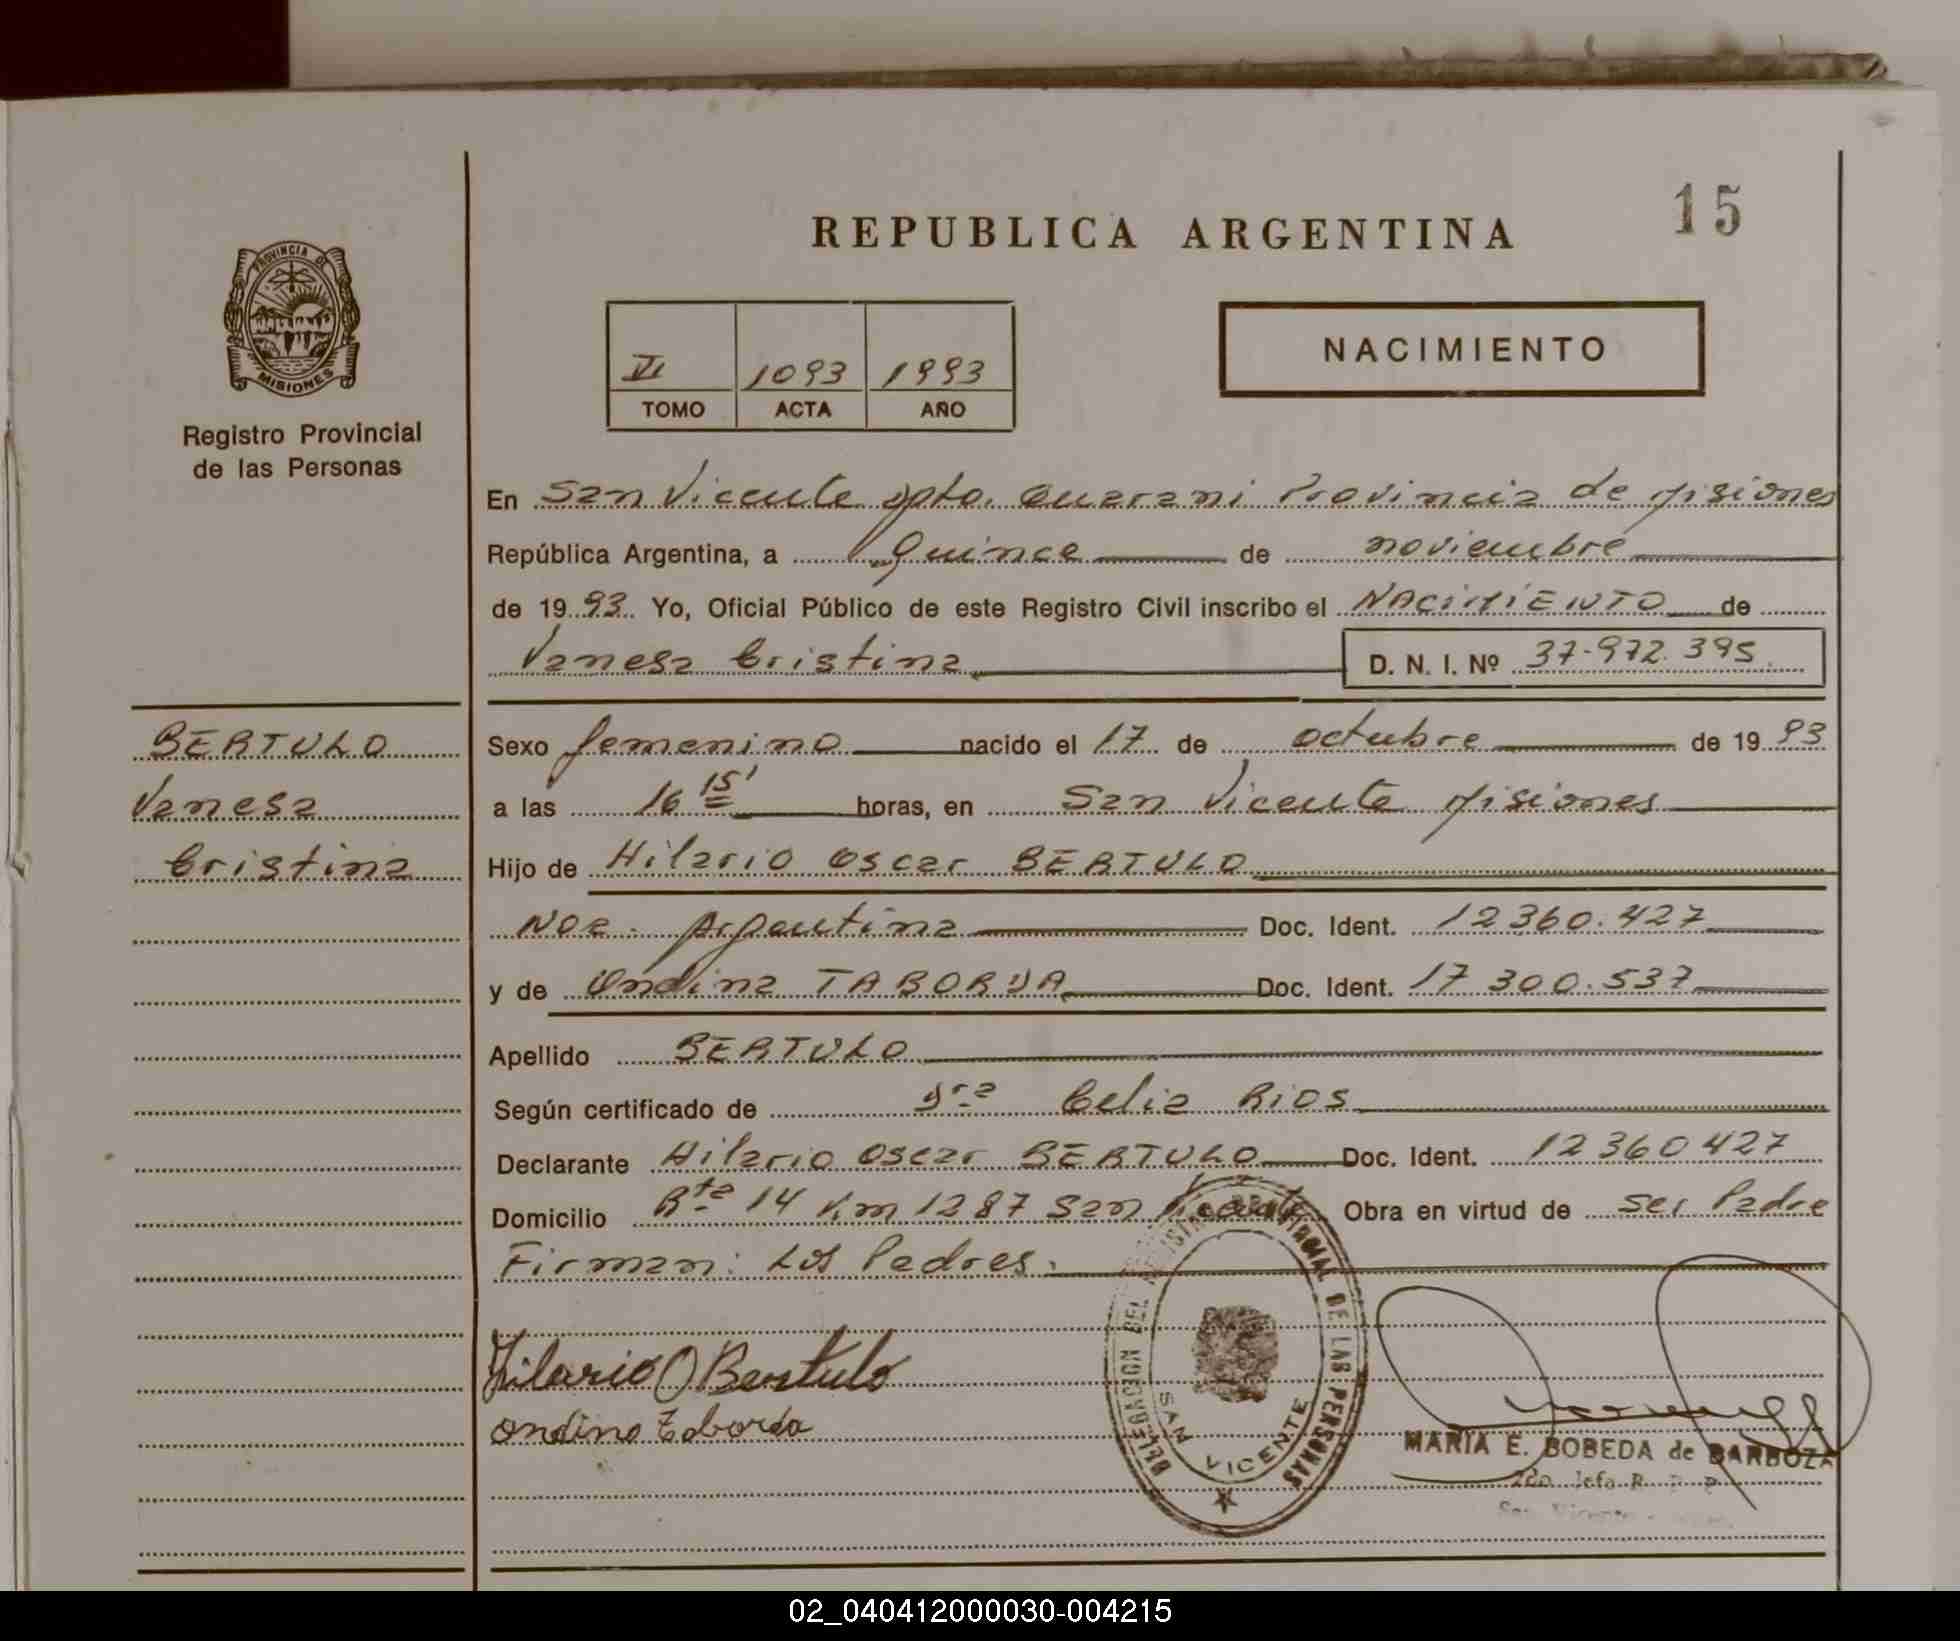 REPUBLICA ARGENTINA
15
PROVINCIA DE
MISIONES
Registro Provincial
de las Personas
VI 1093 1993
TOMO ACTA AÑO
NACIMIENTO
En San Vicente Dpto. Guarani Provincia de Misiones
República Argentina, a Quince de noviembre
de 1993 Yo, Oficial Público de este Registro Civil inscribo el NACIMIENTO de
Vanesa Cristina D. N. I. Nº 37.972.395
BERTULO
Vanesa
Cristina
Sexo femenino nacido el 17 de octubre de 1993
a las 16 15' horas, en San Vicente Misiones
Hijo de Hilario Oscar BERTULO
Nac. Argentina Doc. Ident. 12360.427
y de Ondina TABORDA Doc. Ident. 17 300.537
Apellido BERTULO
Según certificado de Dra Celia Rios
Declarante Hilario Oscar BERTULO Doc. Ident. 12360427
Domicilio Rta 14 Km 1287 San Vicente Obra en virtud de ser Padre
Firman: Los Padres.
Hilario O Bertulo
Ondina Taborda
DELEGACION DEL REGISTRO PROVINCIAL DE LAS PERSONAS
SAN VICENTE
MARIA E. BOBEDA de BARBOZA
2da Jefa R. P. P.
San Vicente
02_040412000030-004215